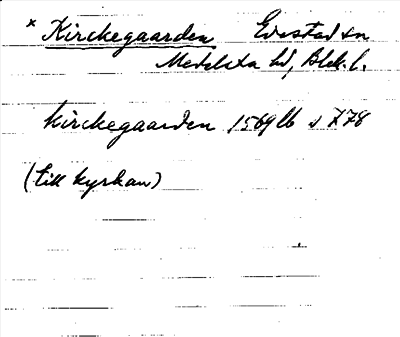 * Kirckegaarden Edestad sn
Medelsta hd, Blek. l.
kirckegaarden 1569 lb s 778
(till kyrkan)